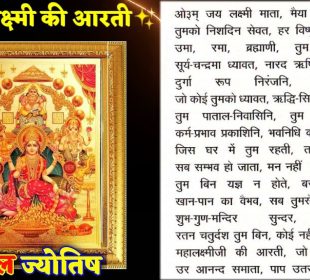 क्ष्मी की आरती
ज्योतिष
ओ३म् जय लक्ष्मी माता, मैया
तुमको निशदिन सेवत, हर विष्
उमा, रमा, ब्रह्माणी, तुम
सूर्य-चन्द्रमा ध्यावत, नारद ऋषि
दुर्गा रूप निरंजनि,
जो कोई तुमको ध्यावत, ऋद्धि-सि
तुम पाताल-निवासिनि, तुम
कर्म-प्रभाव प्रकाशिनि, भवनिधि क
जिस घर में तुम रहती, त
सब सम्भव हो जाता, मन नहीं
तुम बिन यज्ञ न होते, व
खान-पान का वैभव, सब तुमसे
शुभ-गुण-मन्दिर सुन्दर,
रतन चतुर्दश तुम बिन, कोई नहीं
महालक्ष्मीजी की आरती, जो
उर आनन्द समाता, पाप उतर